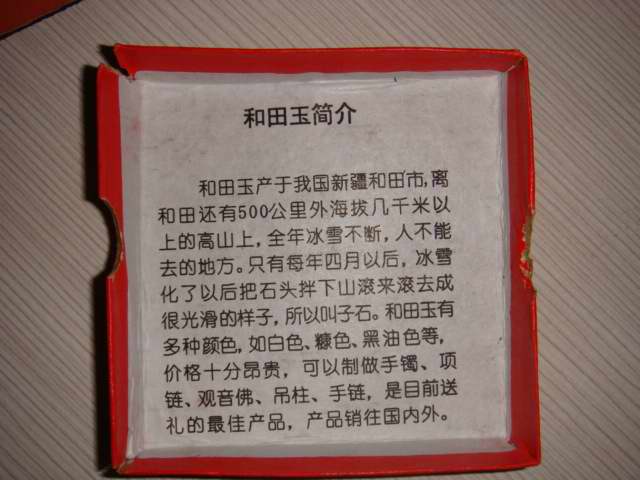 和田玉简介
和田玉产于我国新疆和田市,离
和田还有500公里外海拔几千米以
上的高山上,全年冰雪不断,人不能
去的地方。只有每年四月以后,冰雪
化了以后把石头拌下山滚来滚去成
很光滑的样子,所以叫子石。和田玉有
多种颜色,如白色、糠色、黑油色等,
价格十分昂贵,可以制做手镯、项
链、观音佛、吊柱、手链,是目前送
礼的最佳产品,产品销往国内外。